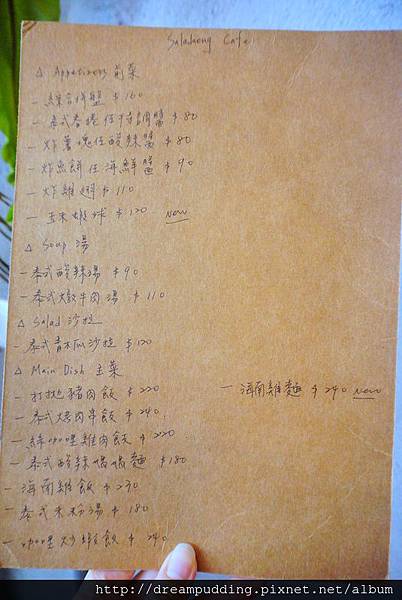 Saladaeng Cafe
△ Appetizers 前菜
- 綜合拼盤 $160
- 泰式春捲佐特調醬 $80
- 炸薯塊佐酸辣醬 $80
- 炸魚餅佐海鮮醬 $90
- 炸雞翅 $110
- 玉米蝦球 $120 New
△ Soup 湯
- 泰式酸辣湯 $90
- 泰式燉牛肉湯 $110
△ Salad 沙拉
- 泰式青木瓜沙拉 $120
△ Main Dish 主菜
- 打拋豬肉飯 $220
- 海南雞麵 $240 New
- 泰式烤肉串飯 $240
- 綠咖哩雞肉飯 $220
- 泰式酸辣媽媽麵 $180
- 海南雞飯 $230
- 泰式米粉湯 $180
- 咖哩炒蝦飯 $240
http://dreampudding.pixnet.net/album